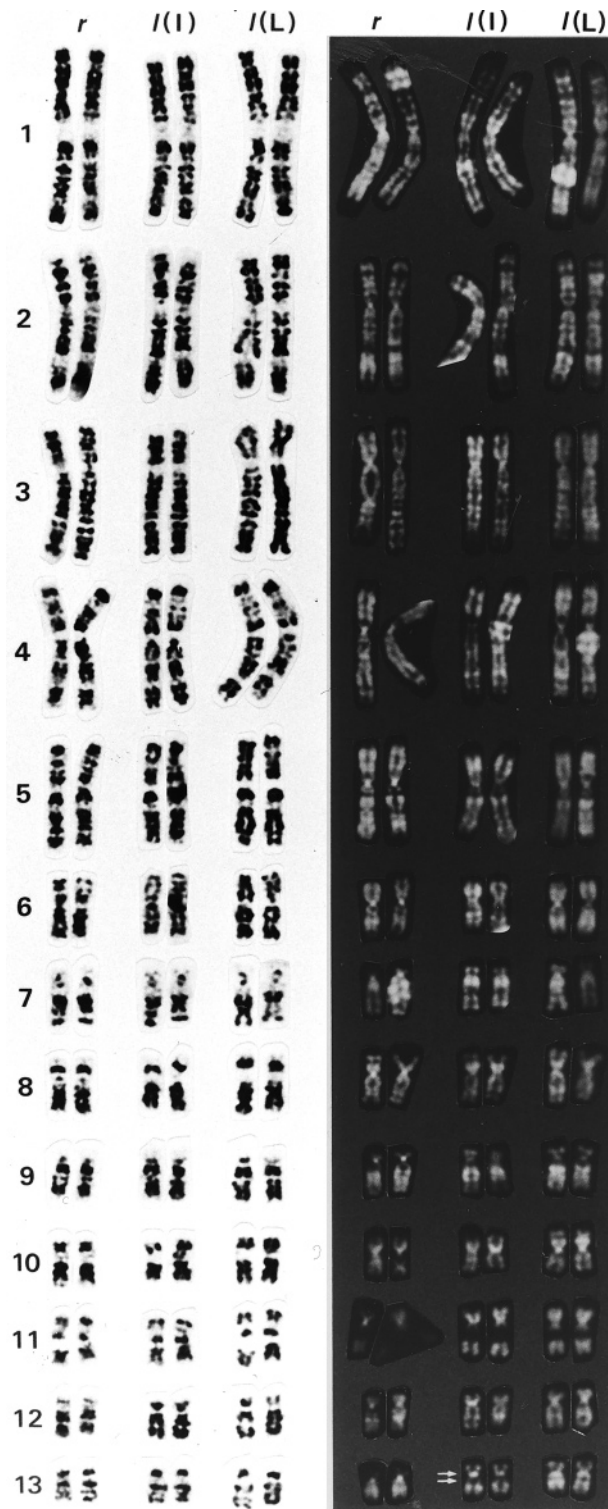 r l(I) l(L) r l(I) l(L)
1
2
3
4
5
6
7
8
9
10
11
12
13